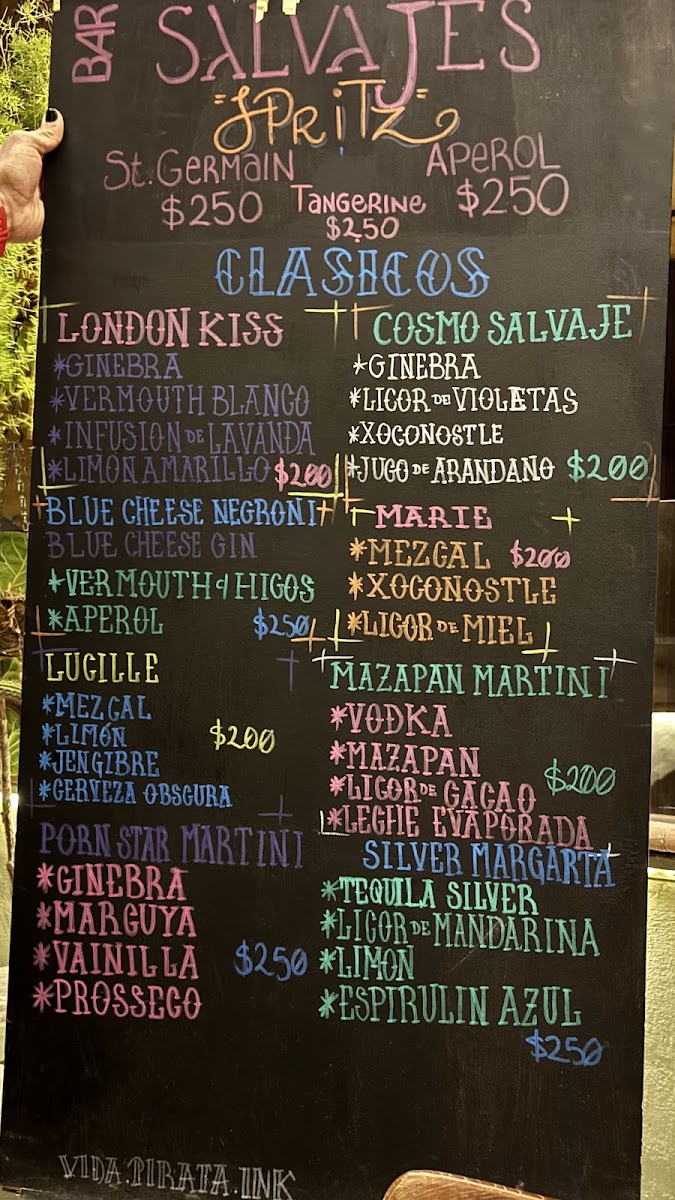 BAR SALVAJES
"SPRITZ"
St. GERMAIN
$250
TANGERINE
$250
APEROL
$250
CLASICOS
LONDON KISS
*GINEBRA
*VERMOUTH BLANCO
*INFUSION DE LAVANDA
*LIMON AMARILLO $200
COSMO SALVAJE
*GINEBRA
*LICOR DE VIOLETAS
*XOCONOSTLE
*JUGO DE ARANDANO $200
BLUE CHEESE NEGRONI
BLUE CHEESE GIN
*VERMOUTH d HIGOS
*APEROL $250
MARIE
*MEZCAL $200
*XOCONOSTLE
*LICOR DE MIEL
LUCILLE
*MEZCAL
*LIMÓN $200
*JENGIBRE
*CERVEZA OBSCURA
MAZAPAN MARTINI
*VODKA
*MAZAPAN
*LICOR DE CACAO $200
*LECHE EVAPORADA
PORN STAR MARTINI
*GINEBRA
*MARCUYA
*VAINILLA $250
*PROSSECO
SILVER MARGARTA
*TEQUILA SILVER
*LICOR DE MANDARINA
*LIMON
*ESPIRULIN AZUL
$250
VIDA.PIRATA.INK